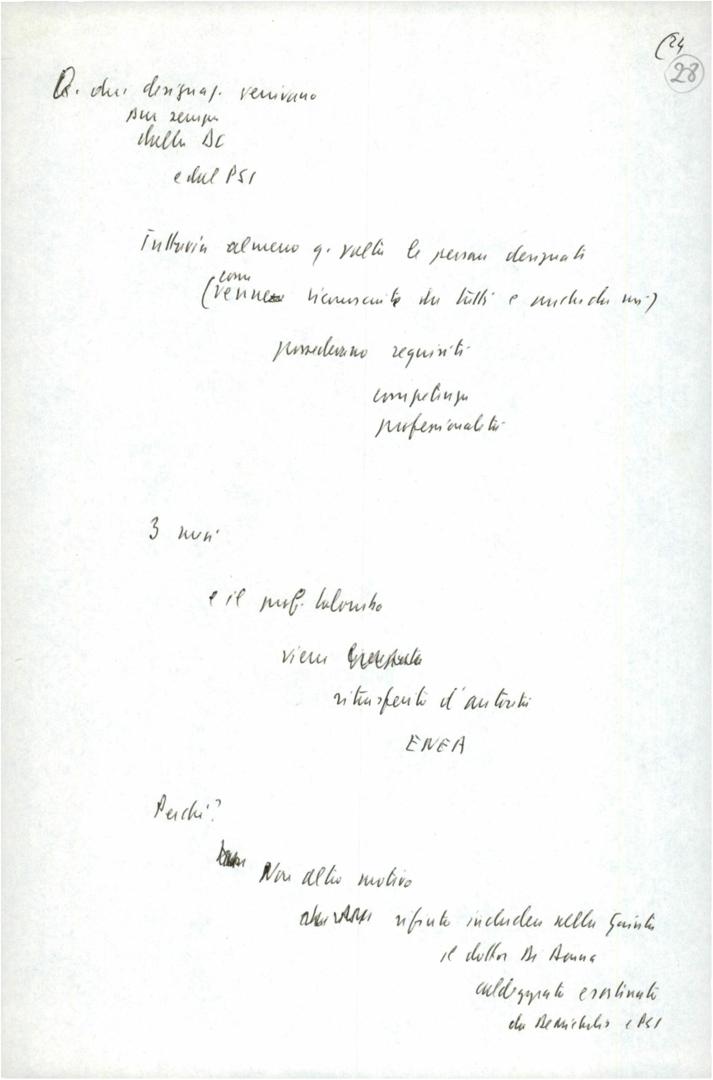 (24
28
Q. due designaz. venivano
pur sempre
dalla DC
e dal PSI
Tuttavia almeno q. volta le persone designate
come
(venne riconosciuto da tutti e anche da noi)
possedevano requisiti
competenza
professionalità
3 mesi
e il prof. Colombo
viene
ritrasferito d'autorità
ENEA
Perché?
Non altro motivo
rifiuto includere nella Giunta
il dottor Di Donna
caldeggiato e sostenuto
da De Michelis e PSI